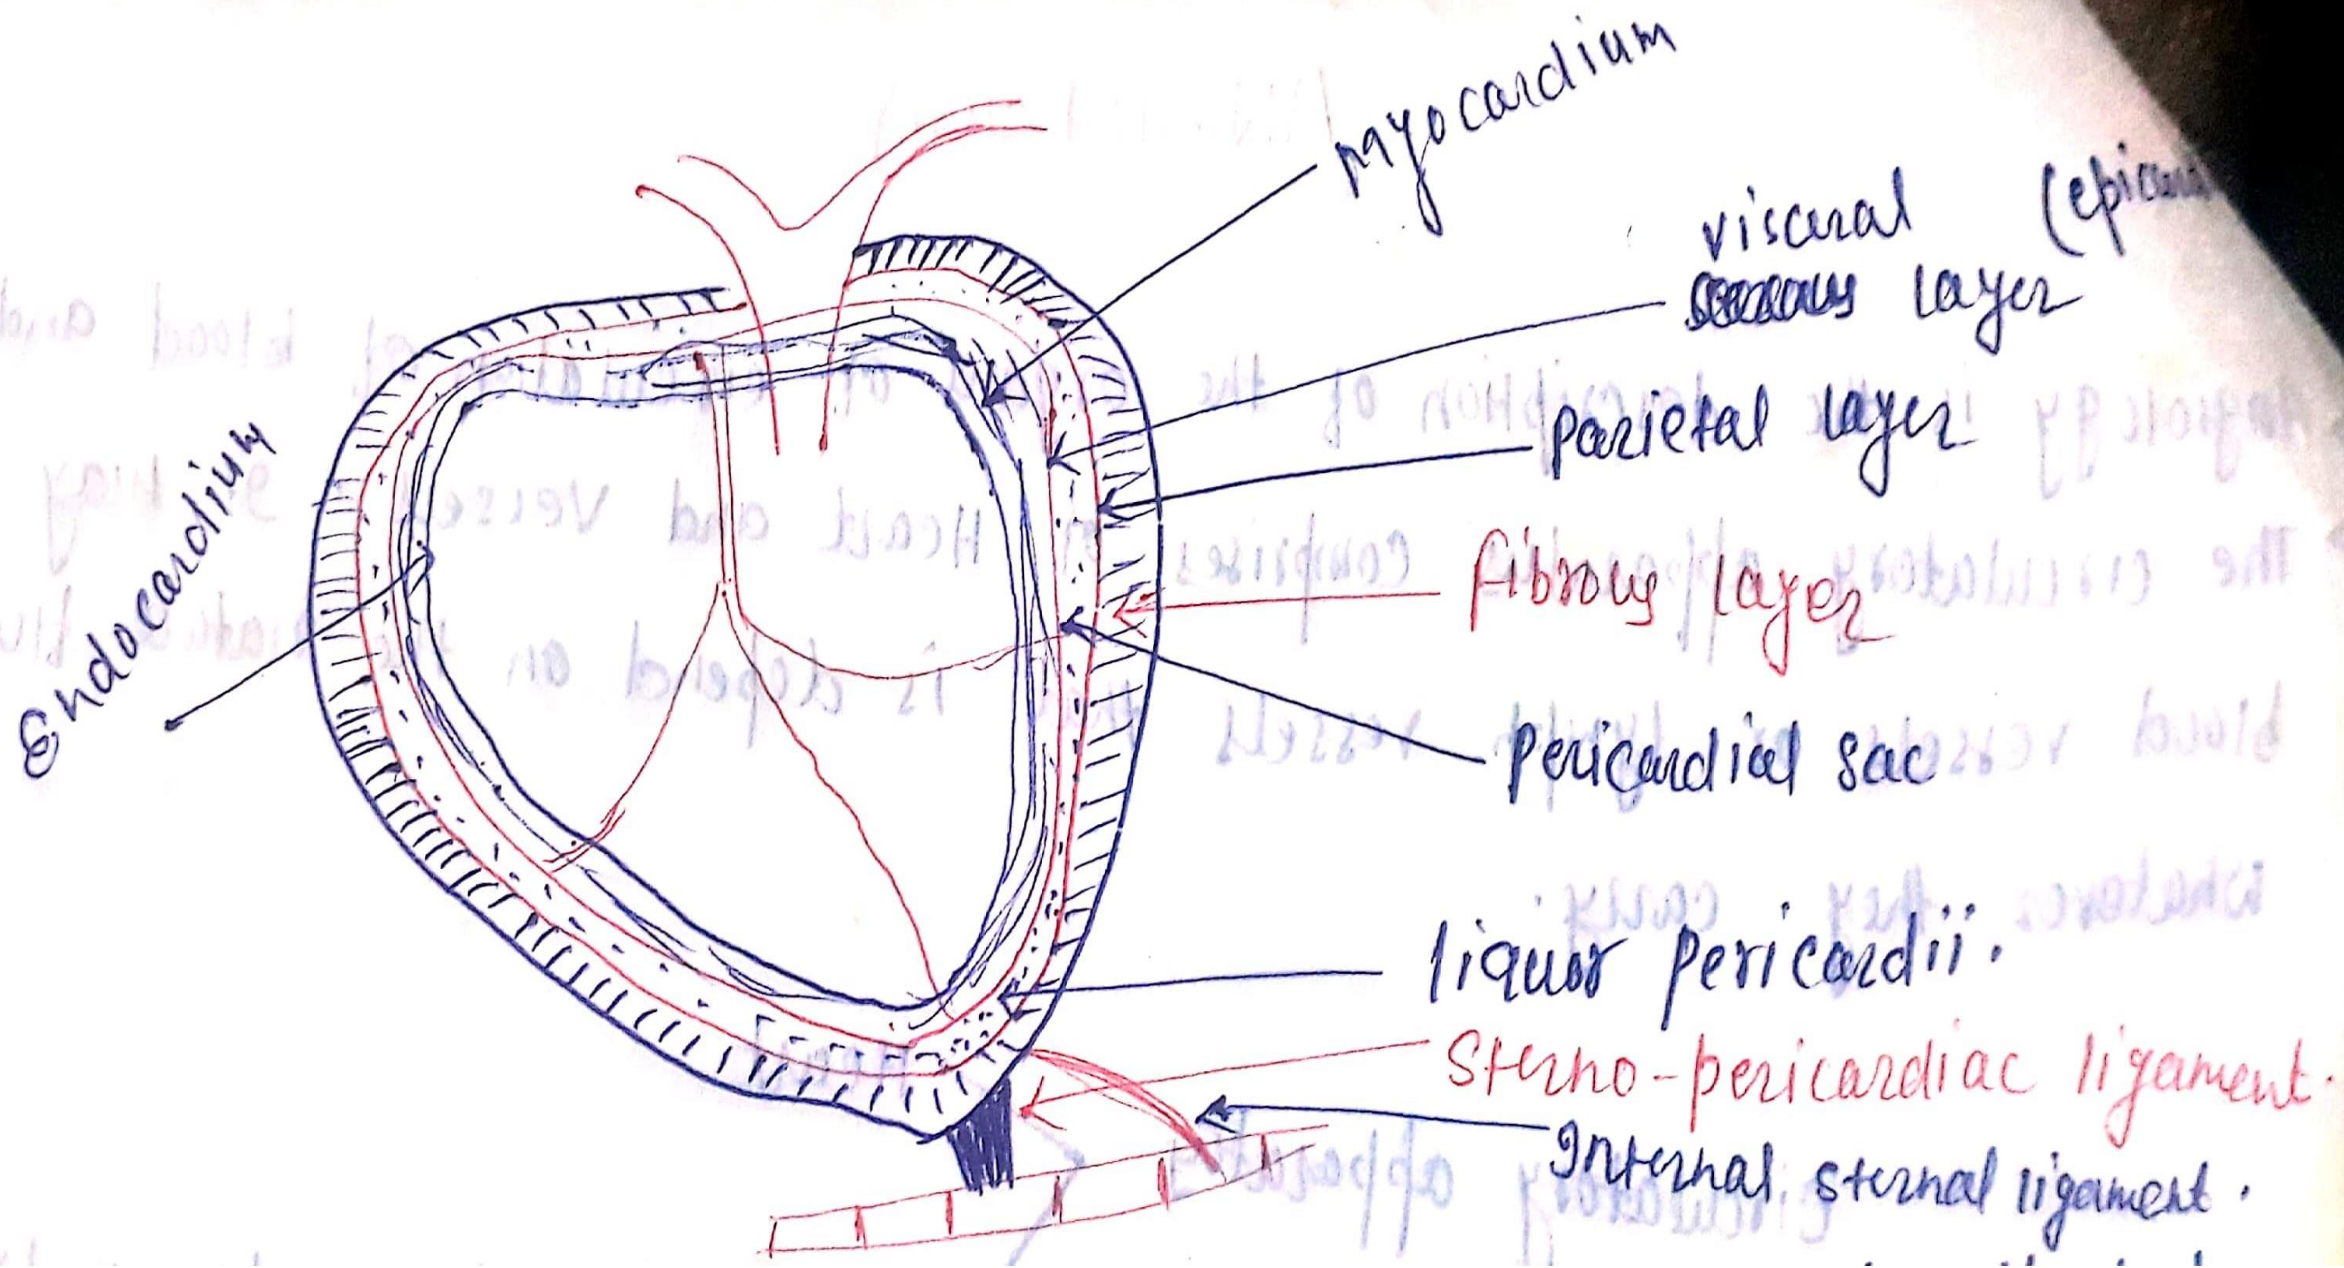 Myocardium
visceral (epicard
layer
Parietal layer
fibrous layer
Endocardium
Pericardial sac
liquor pericardii.
Sterno-pericardiac ligament.
Internal sternal ligament.